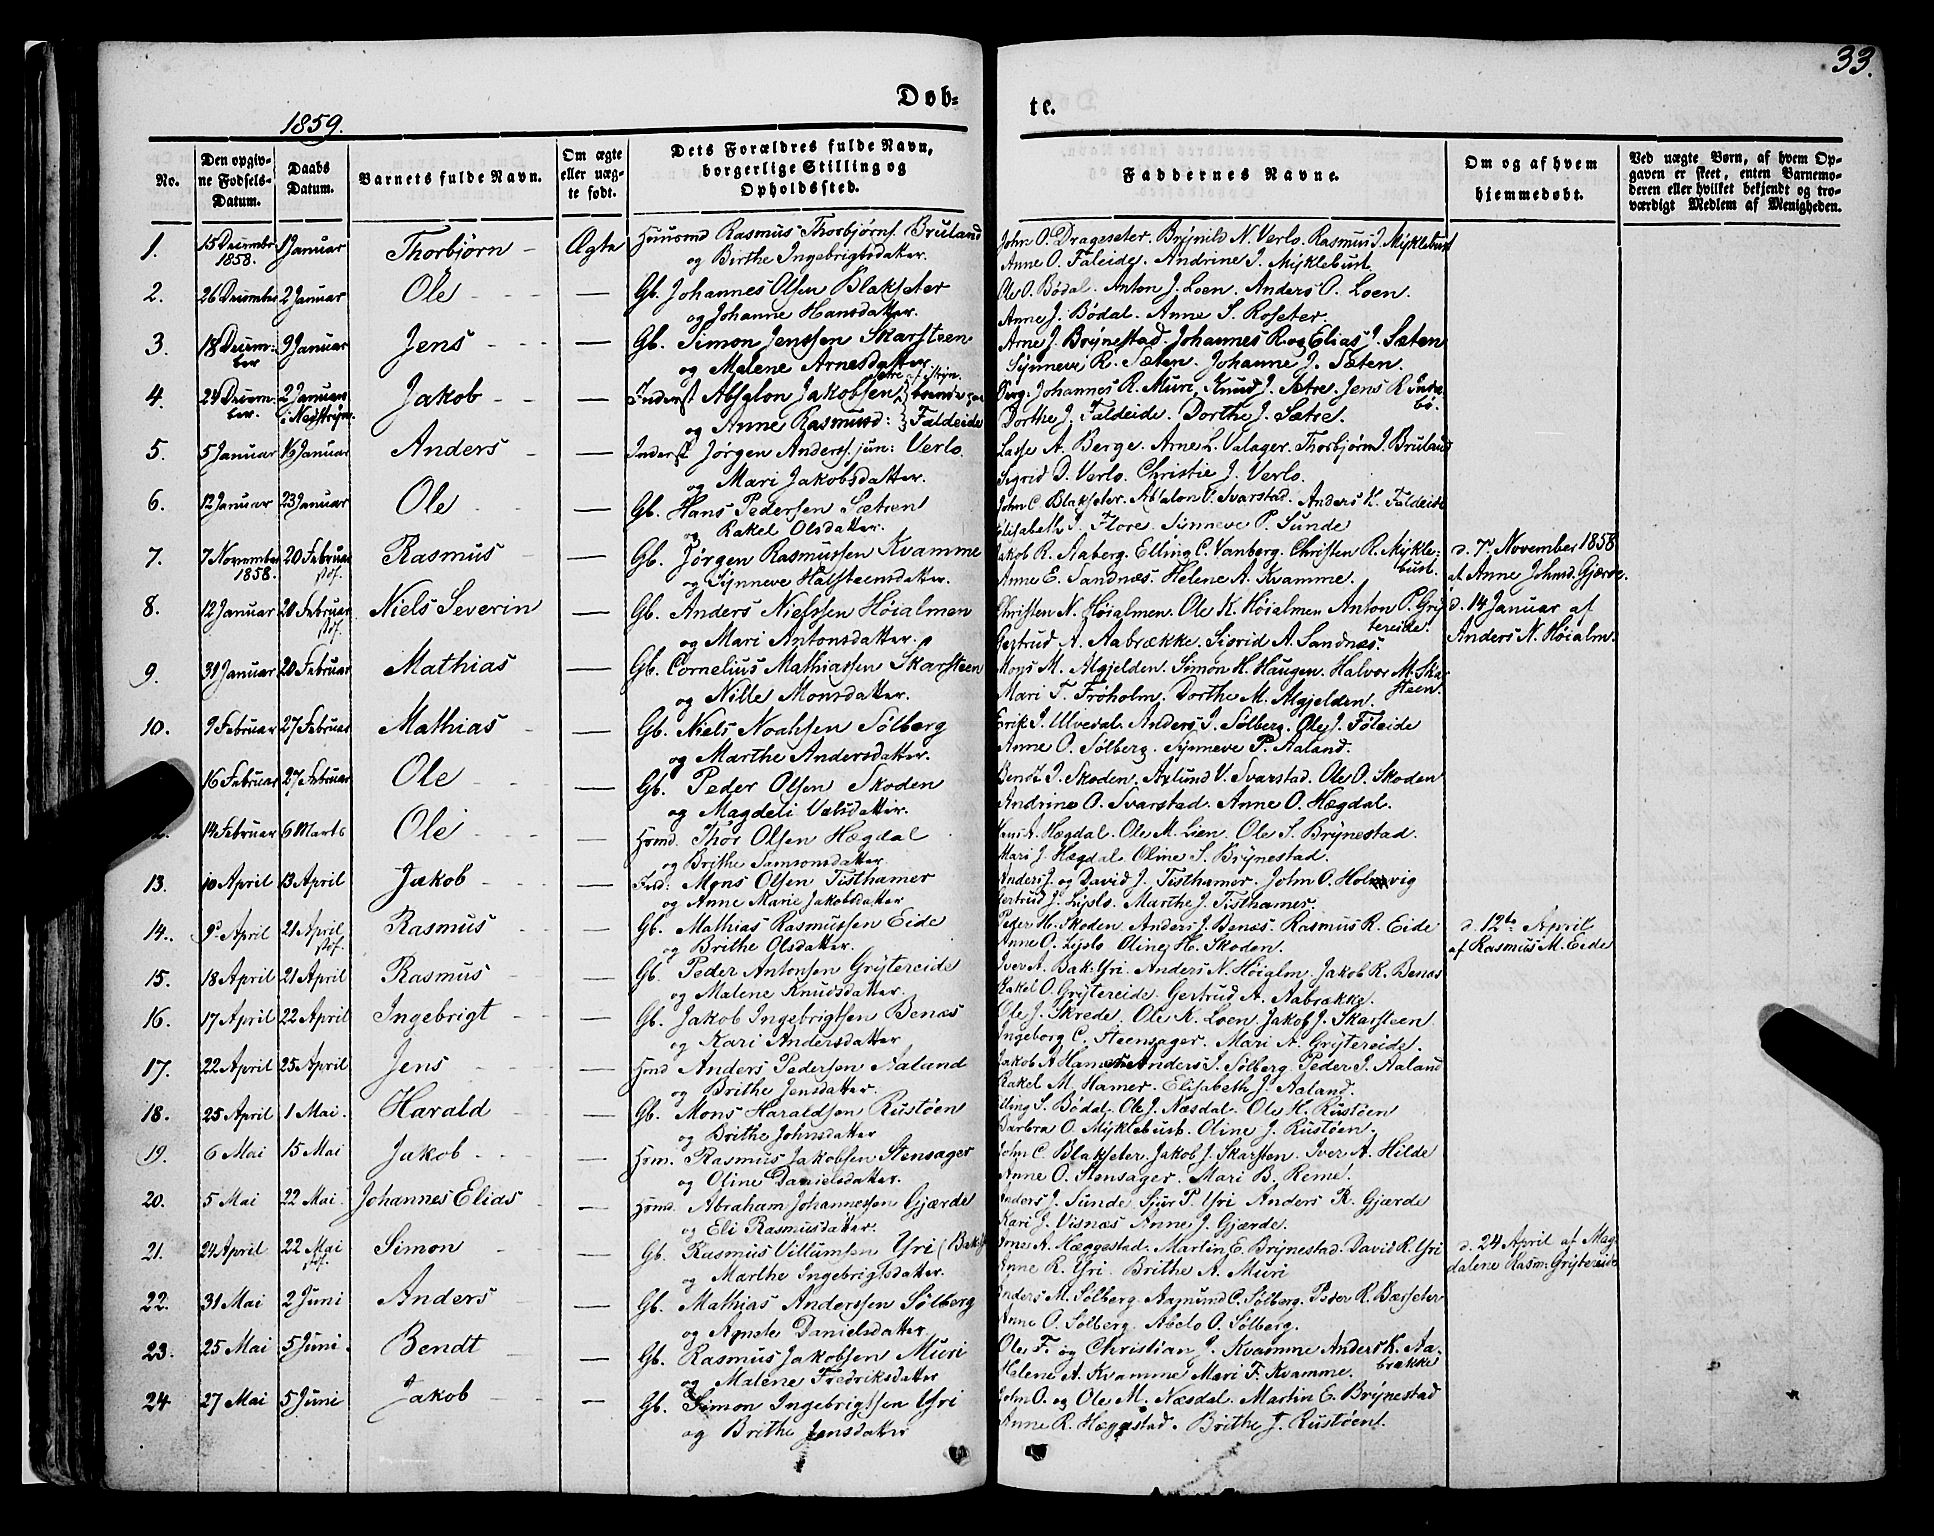 33.
Døb-
te.
1859.
No.
Den opgiv-
ne Fødsels-
Datum.
Daabs
Datum.
Barnets fulde Navn.
Om ægte
eller uæg-
te født.
Dets Forældres fulde Navn,
borgerlige Stilling og
Opholdssted.
Faddernes Navne.
Om og af hvem
hjemmedøbt.
Ved uægte Børn, af hvem Op-
gaven er skeet, enten Barnemo-
deren eller hvilket bekjendt og tro-
værdigt Medlem af Menigheden.
1. 15 December 1 Januar Thorbjørn Ægte Huusmd Rasmus Thorbjørns. Bruland John O. Drageseter. Brynild N. Verlo. Rasmus J. Myklebust
1858. og Birthe Ingebrigtsdatter. Anne O. Faleide. Andrine J. Myklebust.
2. 26 December 2 Januar Ole — Gb. Johannes Olsen Blakseter Ole O. Bødal. Anton J. Loen. Anders O. Loen.
og Johanne Hansdatter. Anne J. Bødal. Anne S. Roseter.
3. 18 Decem- 9 Januar Jens — Gb. Simon Jenssen Skarsteen Arne J. Brynestad. Johannes R. og Elias J. Sæten
ber og Malene Arnesdatter Synneve R. Sæten. Johanne J. Sæten.
4. 24 Decem- 2 Januar Jakob — Inderst Absalon Jakobsen Berg. Johannes R. Muri. Knud J. Sætre. Jens R. Inde-
ber. i Nedstryn. og Anne Rasmusd: Faldeide Dorthe J. Faldeide. Dorthe J. Sætre. bø.
5. 5 Januar 16 Januar Anders — Inderst Jørgen Anderss. jun: Verlo. Lasse A. Berge. Arne L. Valager. Thorbjørn J. Bruland
og Mari Jakobsdatter. Sigrid D. Verlo. Christie J. Verlo.
6. 12 Januar 23 Januar Ole — Gb. Hans Pedersen Sætren John C. Blakseter. Absalon O. Svarstad. Anders K. Faldeide
og Rakel Olsdatter. Elisabeth J. Flore. Synneve P. Sunde
7. 7 November 20 Februar Rasmus — Gb. Jørgen Rasmussen Kvamme Jakob R. Aaberg. Elling C. Vanberg. Christen R. Mykle- d. 7de November 1858
1858. og Synneve Halsteensdatter. Anne E. Sandnæs. Helene A. Kvamme. bust. af Anne Johnsd. Gjærde.
8. 12 Januar 20 Februar Niels Severin — Gb. Anders Nielssen Høialmen Christen N. Høialmen. Ole K. Høialmen Anton P. Gry- d. 14 Januar af
og Mari Antonsdatter. Gertrud A. Aabrække. Sigrid A. Sandnæs. tereide. Anders N. Høialm.
9. 31 Januar 20 Februar Mathias — Gb. Cornelius Mathiassen Skarsteen Mons M. Algjelden. Simon H. Haugen. Halvor M. Skar-
og Nille Monsdatter. Mari T. Frøholm. Dorthe M. Algjelden. steen.
10. 9 Februar 27 Februar Mathias — Gb. Niels Noahsen Sølberg Erik J. Ulvedal. Anders J. Sølberg. Ole J. Foleide
og Marthe Andersdatter. Anne O. Sølberg. Synneve P. Aaland.
16 Februar 27 Februar Ole — Gb. Peder Olsen Skoden Bendt J. Skoden. Axlund V. Svarstad. Ole O. Skoden
og Magdeli Valsdatter. Andrine O. Svarstad. Anne O. Hægdal.
14 Februar 6 Marts Ole — Hsmd. Thor Olsen Hægdal Hans A. Hægdal. Ole M. Lien. Ole S. Brynestad.
og Brithe Samsonsdatter Mari J. Hægdal. Oline S. Brynestad.
13. 10 April 13 April Jakob — Ind: Mons Olsen Tisthamer Anders J. og David J. Tisthamer. John O. Holmvig
og Anne Marie Jakobsdatter Gertrud J. Lyslo. Marthe J. Tisthamer.
14. 9de April 21 April Rasmus — Gb. Mathias Rasmussen Eide Peder H. Skoden. Anders J. Benæs. Rasmus R. Eide d. 12te April
og Brithe Olsdatter. Anne O. Lyslo. Oline H. Skoden. af Rasmus M. Eide
15. 18 April 21 April Rasmus — Gb. Peder Antonsen Grytereide Iver A. Bak-Yri. Anders N. Høialm. Jakob R. Benæs
og Malene Knudsdatter. Rakel O. Grytereide. Gertrud A. Aabrække.
16. 17 April 22 April Ingebrigt — Gb. Jakob Ingebrigtsen Benæs Ole J. Skrede. Ole K. Loen. Jakob J. Skarsteen
og Kari Andersdatter Ingeborg C. Steensager. Mari A. Grytereide.
17. 22 April 25 April Jens — Hsmd Anders Pedersen Aaland Jakob A. Hamer Anders J. Sølberg. Peder J. Aaland
og Brithe Jensdatter. Rakel M. Hamer. Elisabeth J. Aaland.
18. 25 April 1 Mai. Harald — Gb. Mons Haraldsen Rustøen Elling S. Bødal. Ole J. Næsdal. Ole H. Rustøen
og Brithe Johnsdatter Barbra O. Myklebust. Oline J. Rustøen.
19. 6 Mai 15 Mai Jakob — Hsm. Rasmus Jakobsen Stensager John C. Blakseter. Jakob J. Skarsten. Iver A. Hilde
og Oline Danielsdatter. Anne O. Stensager. Mari B. Reme.
20. 5 Mai 22 Mai Johannes Elias — Hsmd. Abraham Johannessen Gjærde Anders J. Sunde Sjur P. Yri Anders R. Gjærde
og Eli Rasmusdatter. Kari J. Visnæs Anne J. Gjærde.
21. 24 April 22 Mai Simon — Gb. Rasmus Villumsen Yri (Bak- Arne A. Hæggestad. Martin E. Brynestad. David R. Yri d. 24 April af Mag-
og Marthe Ingebrigtsdatter. Anne R. Yri. Brithe A. Muri dalene Rasm. Grytereide
22. 31 Mai 2 Juni Anders — Gb. Mathias Anderssen Sølberg Anders M. Sølberg. Asmund C. Sølberg. Peder R. Bærseter
og Agnete Danielsdatter. Anne O. Sølberg. Abelo O. Sølberg.
23. 25 Mai 5 Juni Bendt — Gb. Rasmus Jakobsen Muri Ole F. og Christian J. Kvamme Anders K. Aa-
og Malene Fredriksdatter Helene A. Kvamme Mari F. Kvamme. brække
24 27 Mai 5 Juni Jakob — Gb. Simon Ingebrigtsen Yri John O. og Ole M. Næsdal. Martin E. Brynestad
og Brithe Jensdatter Anne R. Hæggestad. Brithe J. Rustøen.